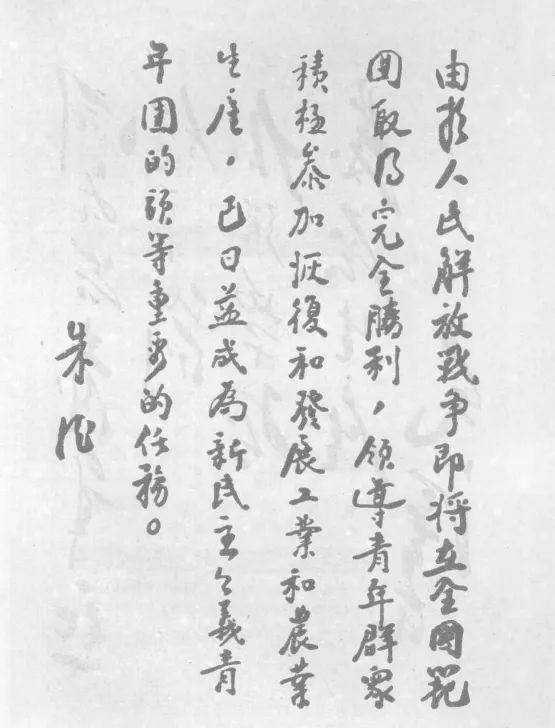 由於人民解放戰争即将在全國範
圍取得完全勝利，領導青年群眾
積極參加恢復和發展工業和農業
生産，已日益成為新民主主義青
年團的頭等重要的任務。
朱德